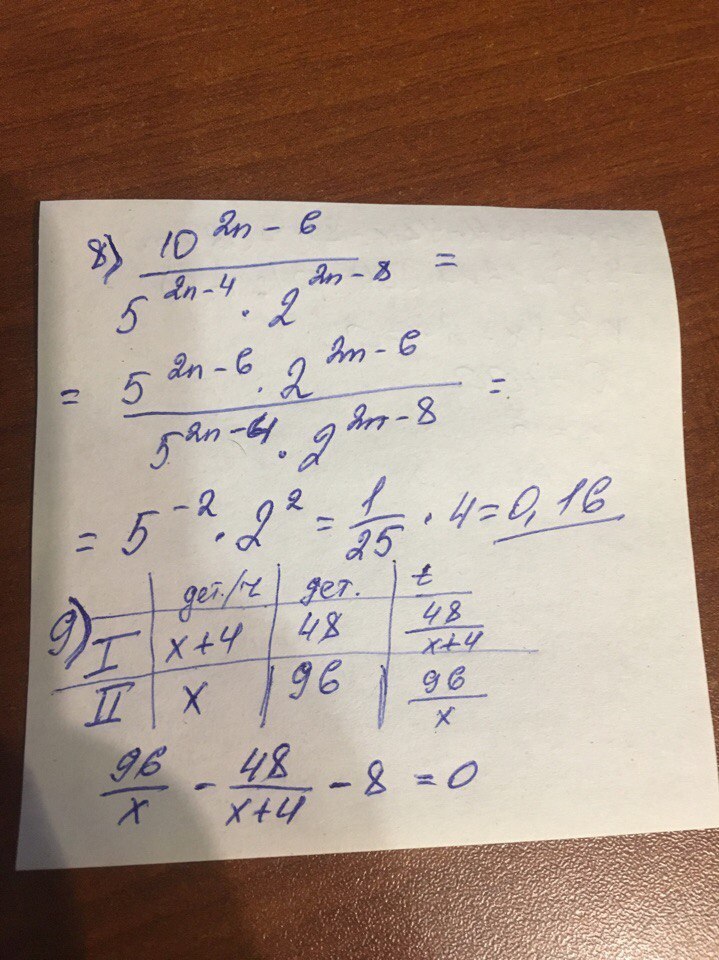 8) 10^(2n-6) / (5^(2n-4) · 2^(2n-8)) =
= (5^(2n-6) · 2^(2n-6)) / (5^(2n-4) · 2^(2n-8)) =
= 5^(-2) · 2^2 = 1/25 · 4 = 0,16
9) | дет./ч | дет. | t
I | x+4 | 48 | 48/(x+4)
II | x | 96 | 96/x
96/x - 48/(x+4) - 8 = 0